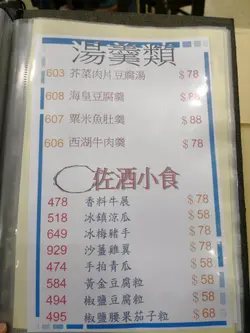 湯羹類
603 芥菜肉片豆腐湯 $78
608 海皇豆腐羹 $88
607 粟米魚肚羹 $88
606 西湖牛肉羹 $78
佐酒小食
478 香料牛展 $78
518 冰鎮涼瓜 $58
649 冰梅豬手 $68
929 沙薑雞翼 $78
474 手拍青瓜 $58
584 黃金豆腐粒 $58
494 椒鹽豆腐粒 $58
495 椒鹽腰果茄子粒 $68